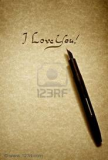 I Love You!
123RF